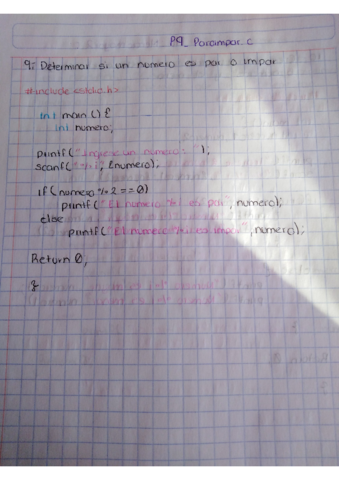 P9_ Parimpar.c
9: Determinar si un numero es par o impar
#include <stdio.h>
int main () {
int numero;
printf ( "Ingrese un numero: " );
scanf( "%i", &numero);
if ( numero % 2 == 0)
printf ( "El numero %i es par", numero);
else
printf ( "El numero %i es impar", numero);
Return 0;
}